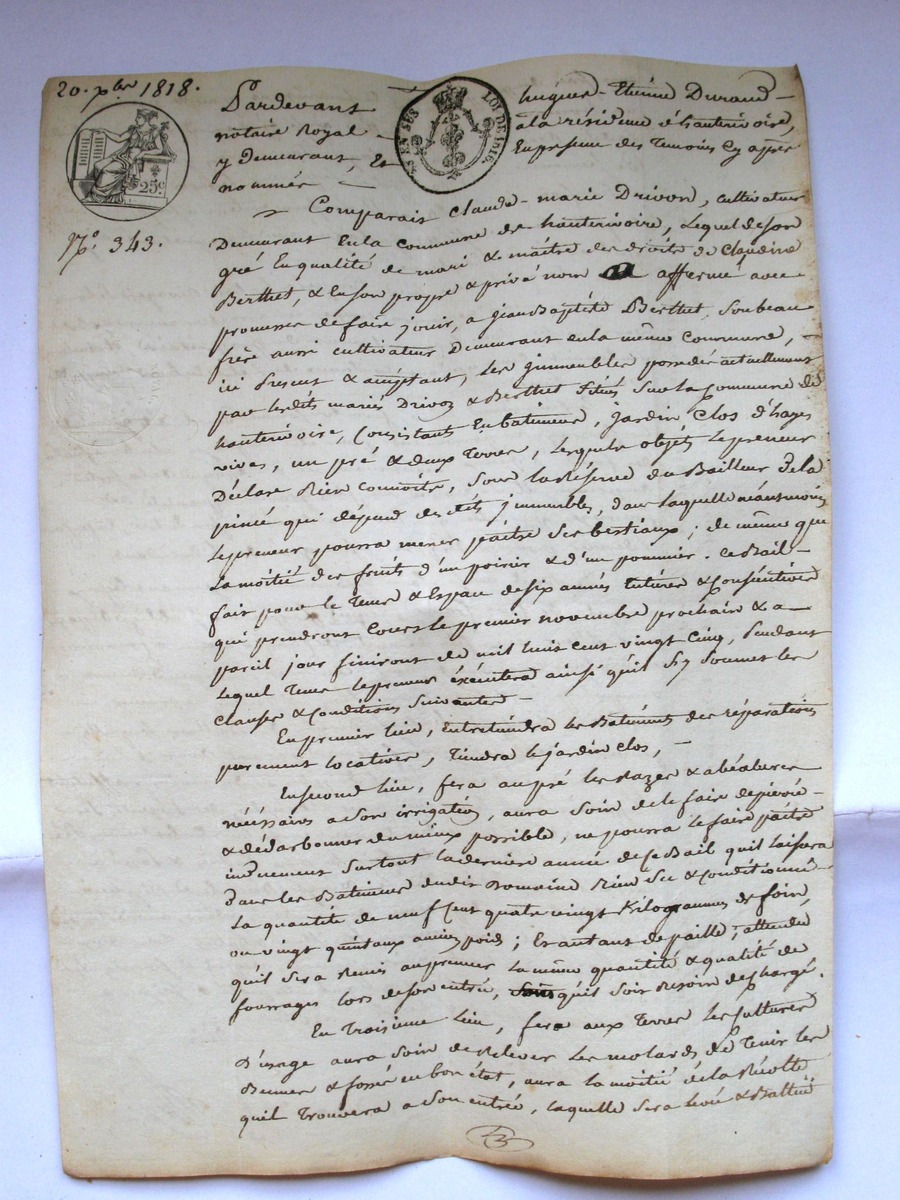 20. xbre 1818.
Pardevant hugues-Etienne Durand
notaire Royal à la résidence d'hauterivoire,
y Demeurant, Et En presence des Temoins Cy après
nommés
25c.
EN SUS LOI DE 1816.
N° 343.
Comparait Claude-marie Drivon, cultivateur
Demeurant En la Commune de hauterivoire, Lequel de son
gré En qualité de mari & maître des droits de Claudine
Berthet, & En son propre & privé nom a affermé avec
promesse de faire jouir, a jean Baptiste Berthet, son beau
frère aussi cultivateur Demeurant en la même Commune,
ici Present & acceptant, les jmmeubles possedés actuellement
par lesdits mariés Drivon & Berthet Situés Sur la Commune de
hauterivoire, Consistants En batiments, jardin Clos d'hayes
vives, un pré & deux Terres, lesquels objets le preneur
Déclare Bien Connoitre, Sous la Réserve du Bailleur de la
qui dépend desdits jmmeubles, dans laquelle néantmoins
le preneur pourra mener paitre Ses bestiaux; de même que
La moitié des fruits d'un poirier & d'un pommier. Ce Bail
fait pour le Tems & Espace de six années entières & Consécutives
qui prendront Cours le premier novembre prochain & a
pareil jour finiront de mil huit Cent vingt Cinq, Pendant
lequel Tems le preneur éxécutera ainsi qu'il S'y Soumet les
Clauses & Conditions Suivantes
En premier lieu, entretiendra les Batiments des réparations
purement locatives, Tiendra le jardin Clos,
En second lieu, fera au pré les Razes & abéalures
nécéssaires a Son irrigation, aura Soin de le faire
& du mieux possible, ne pourra le faire paitre
Surtout la dernière année de ce Bail qu'il laissera
Dans les Batiments dudit Domaine Bien Sec & Conditionné
La quantité de neuf Cent quatre vingt Kilogrammes de foin,
ou vingt quintaux ancien poids; Et autant de paille, attendu
qu'il Sera Remis au preneur la même quantité & qualité de
fourrages lors de son entrée, qu'il soit déchargé.
En Troisième lieu, fera aux Terres les Cultures
D'usage aura Soin de Relever les molards, & de Tenir les
& fossés en bon état, aura la moitié de la Récolte
qu'il Trouvera a Son entrée, laquelle Sera & Battue